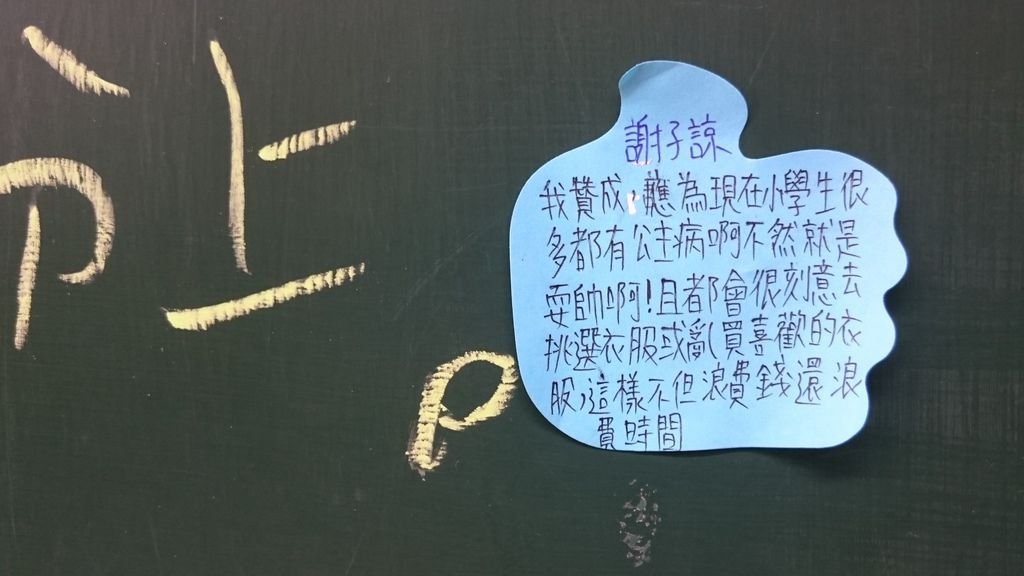 謝子諒
我贊成，應為現在小學生很
多都有公主病啊不然就是
耍帥啊！且都會很刻意去
挑選衣服或亂買喜歡的衣
服，這樣不但浪費錢還浪
費時間